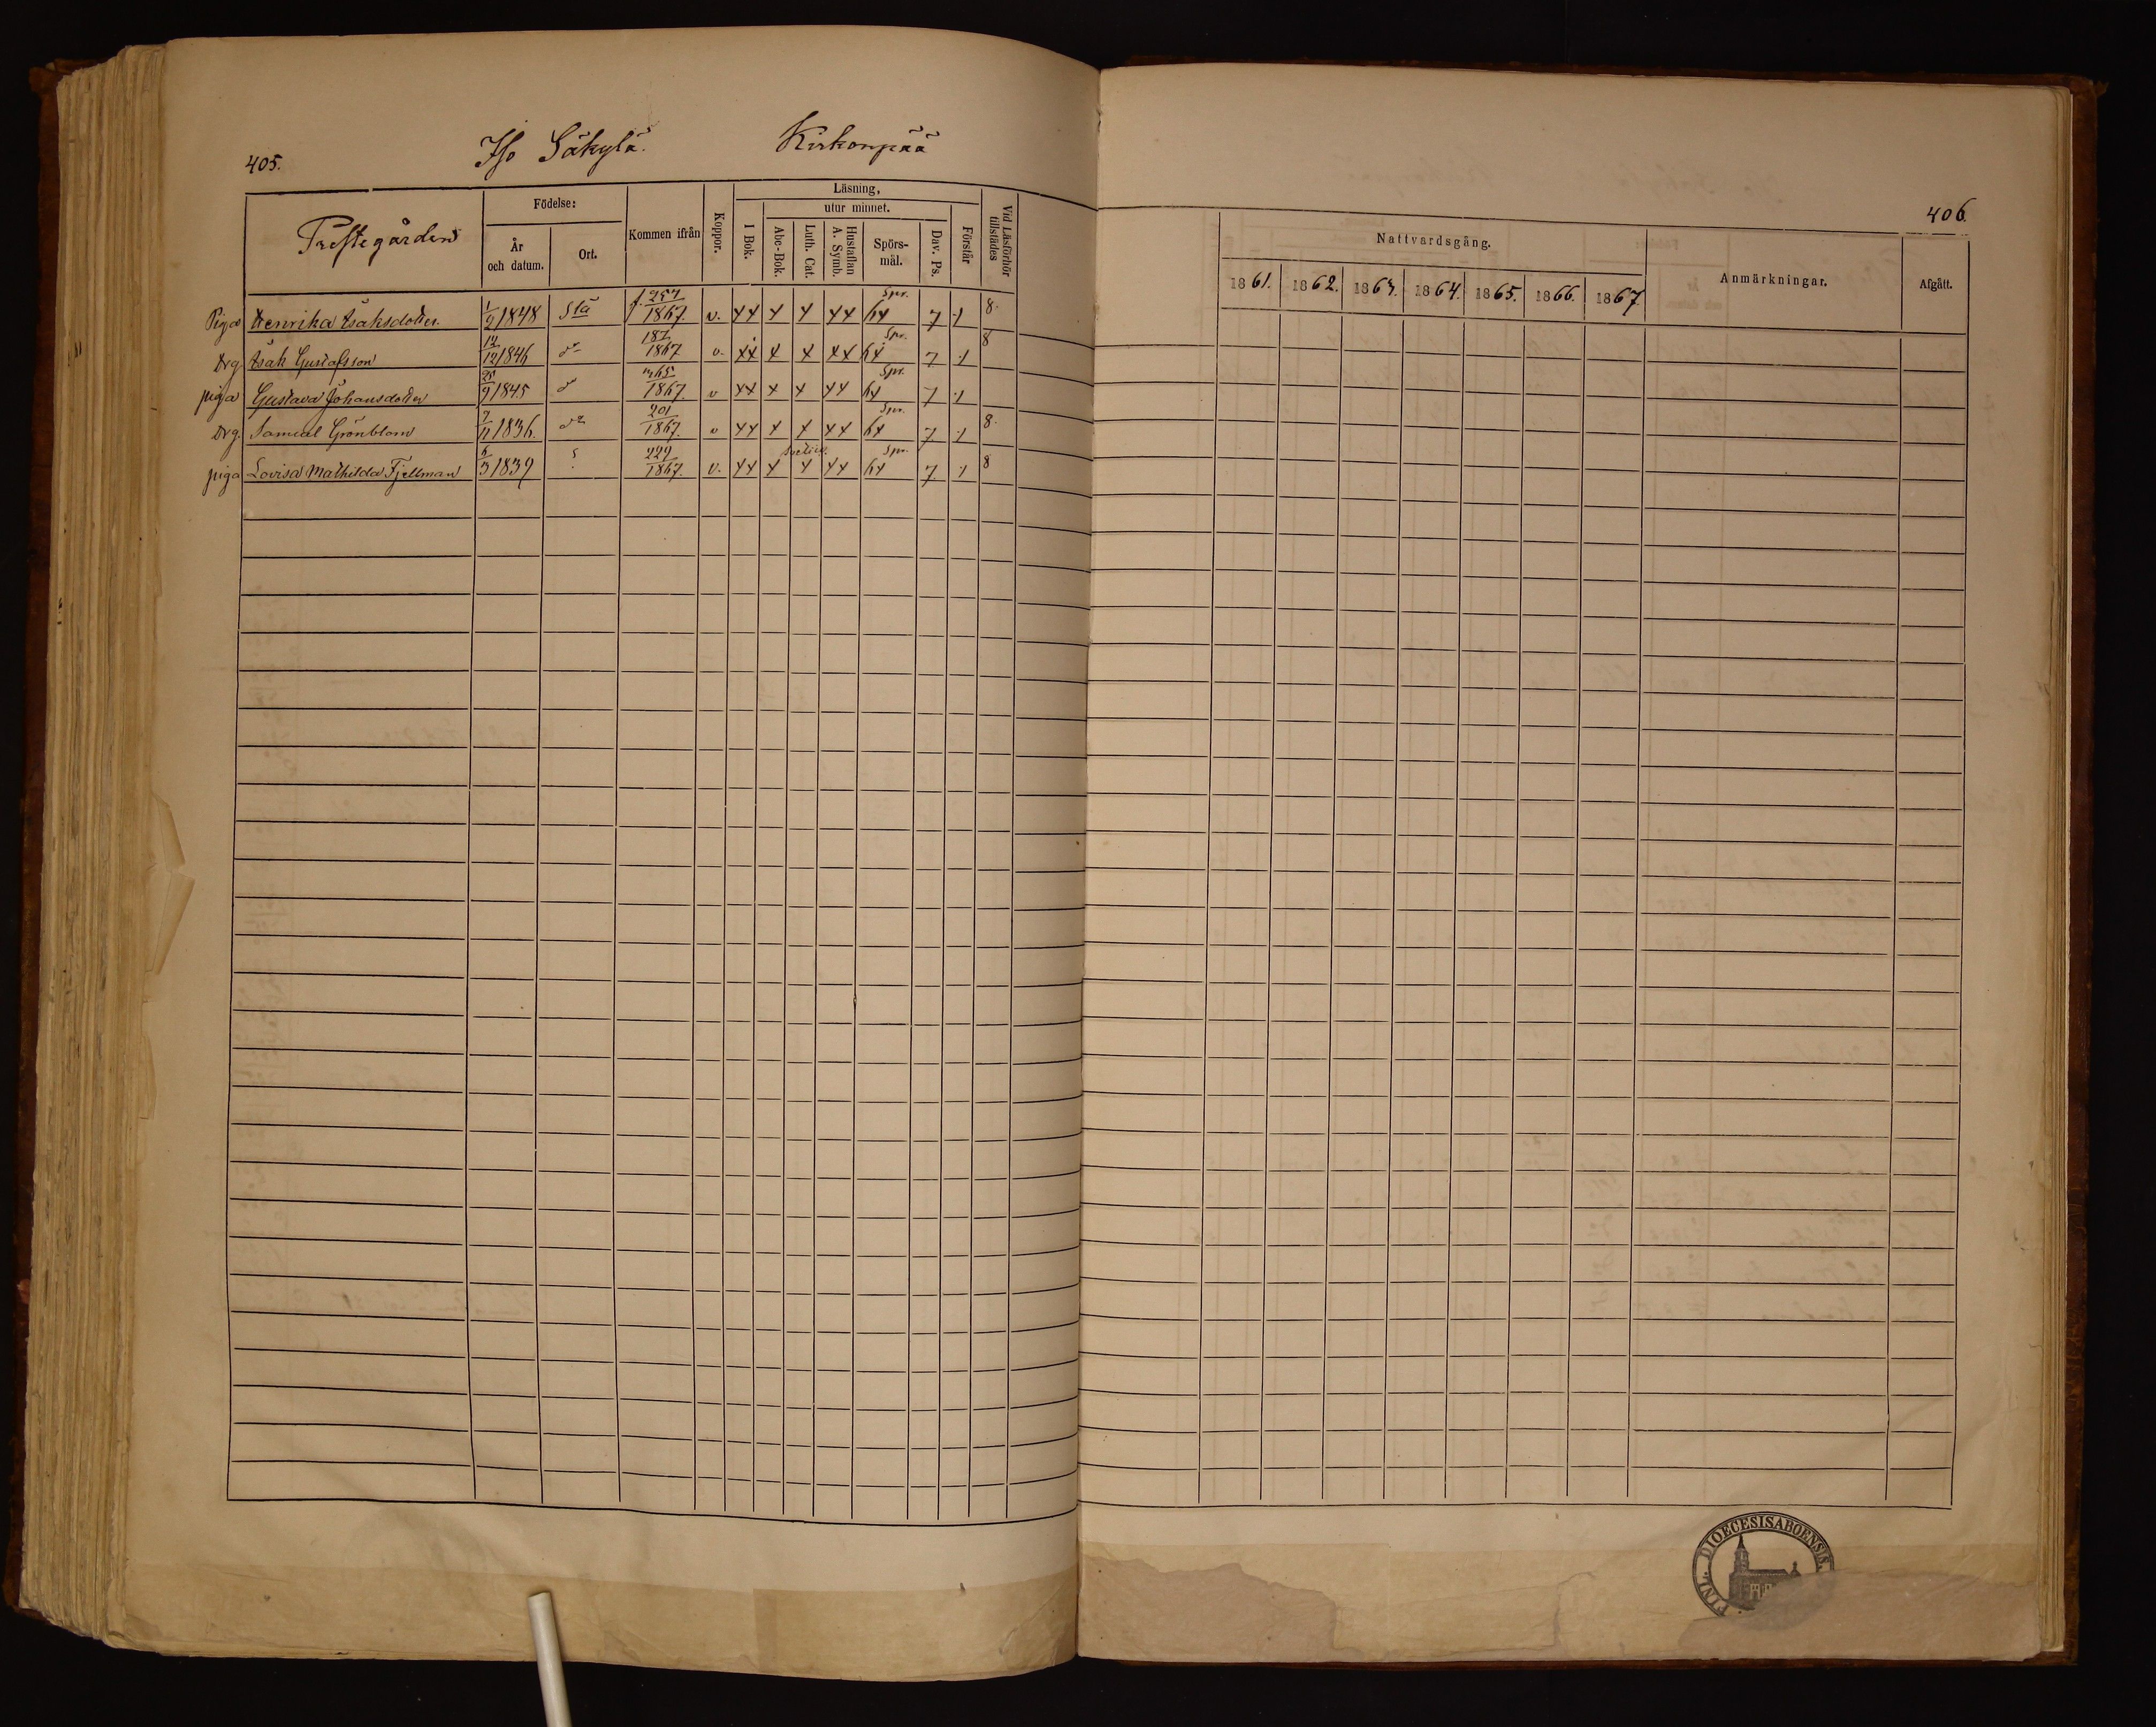 405. Iso Säkylä. Kirkonpää
Prestegården
Födelse:
År och datum.
Ort.
Kommen ifrån
Koppor.
Läsning,
I Bok.
utur minnet.
Abc-Bok.
Luth. Cat.
Hustaflan A. Symb.
Spörsmål.
Dav. Ps.
Förstår
Vid Läsförhör tillstädes
Piga Henrika Isaksdotter. 1/2 1848 Slä f. 257/1867 v. xx x x xx Spr. hx 7 1 8.
Drg Isak Gustafsson 14/12 1846 do 187/1867 v. xx x x xx Spr. hx 7 1 8
piga Gustava Johansdotter 25/9 1845 do 365/1867. v xx x x xx Spr. hx 7 1
Drg. Samuel Grönblom 7/11 1836. do 201/1867. v xx x x xx Spr. hx 7 1 8.
piga Lovisa Mathilda Fjellman 6/3 1839 229/1867. v. xx x x xx Spr. hx 7 1 8
406
Nattvardsgång.
1861. 1862. 1863. 1864. 1865. 1866. 1867.
Anmärkningar.
Afgått.
FINL. DIOECESIS ABOENSIS.